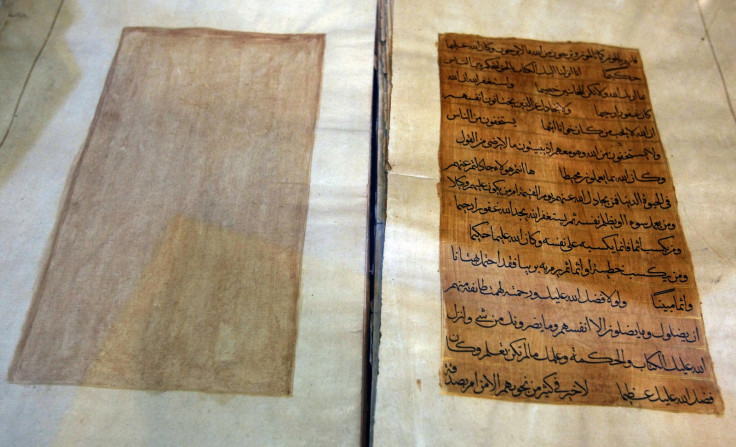 فانهم يالمون كما تالمون وترجون من الله ما لا يرجون وكان الله عليما
حكيما انا انزلنا اليك الكتاب بالحق لتحكم بين الناس
بما اريك الله ولا تكن للخائنين خصيما واستغفر الله ان الله
كان غفورا رحيما ولا تجادل عن الذين يختانون انفسهم
ان الله لا يحب من كان خوانا اثيما يستخفون من الناس
ولا يستخفون من الله وهو معهم اذ يبيتون ما لا يرضى من القول
وكان الله بما يعملون محيطا ها انتم هولاء جادلتم عنهم
في الحيوة الدنيا فمن يجادل الله عنهم يوم القيمة ام من يكون عليهم وكيلا
ومن يعمل سوءا او يظلم نفسه ثم يستغفر الله يجد الله غفورا رحيما
ومن يكسب اثما فانما يكسبه على نفسه وكان الله عليما حكيما
ومن يكسب خطيئة او اثما ثم يرم به بريئا فقد احتمل بهتانا
واثما مبينا ولولا فضل الله عليك ورحمته لهمت طائفة منهم
ان يضلوك وما يضلون الا انفسهم وما يضرونك من شئ وانزل
الله عليك الكتاب والحكمة وعلمك ما لم تكن تعلم وكان
فضل الله عليك عظيما لا خير في كثير من نجويهم الا من امر بصدقة